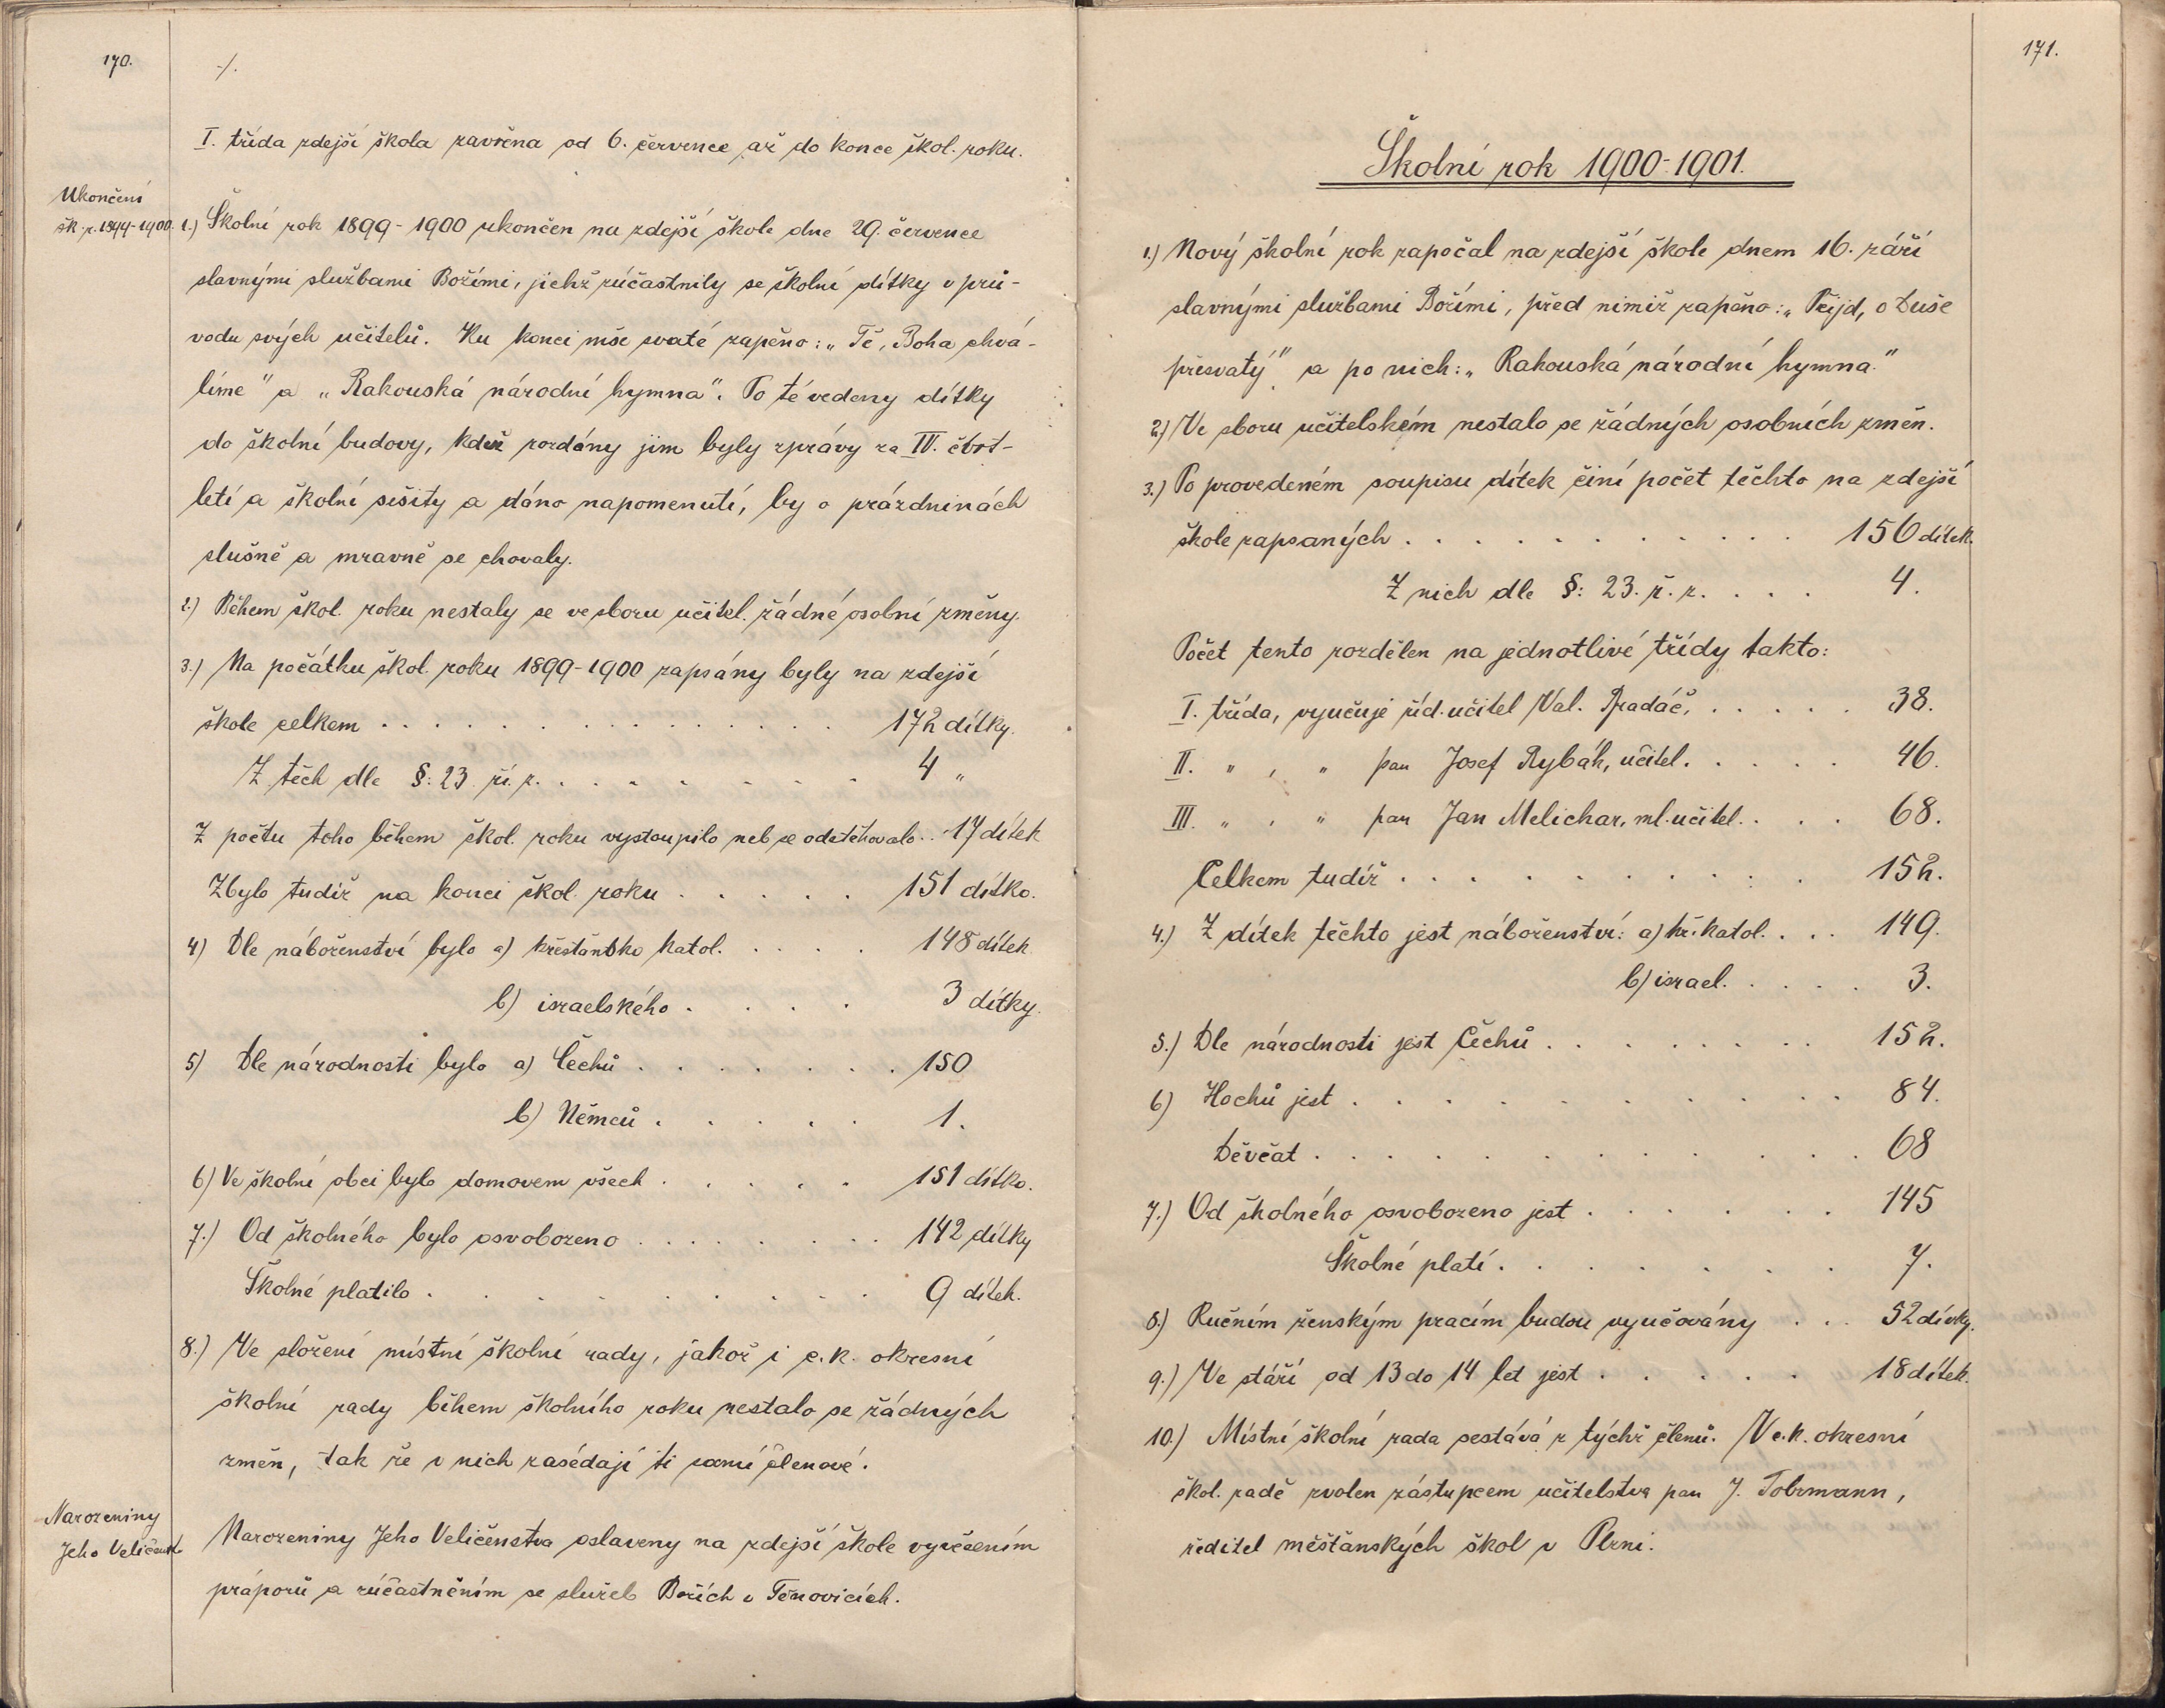 170.
-/.
I. třída zdejší škola zavřena od 6. července až do konce škol. roku.
Ukončení
šk. r. 1899-1900.
1.) Školní rok 1899-1900 ukončen na zdejší škole dne 29. července
slavnými službami Božími, jichž zúčastnily se školní dítky v prů-
vodu svých učitelů. Ku konci mše svaté zapěno: „Tě, Boha chvá-
líme" a „Rakouská národní hymna". Po té vedeny dítky
do školní budovy, kdež rozdány jim byly zprávy za IV. čtvrt-
letí a školní sešity a dáno napomenutí, by o prázdninách
slušně a mravně se chovaly.
2.) Během škol. roku nestaly se ve sboru učitel. žádné osobní změny.
3.) Na počátku škol. roku 1899-1900 zapsány byly na zdejší
škole celkem . . . . . . . . . . . . 172 dítky.
Z těch dle §: 23. ří. z. . . . . . . . . 4 „
Z počtu toho během škol. roku vystoupilo neb se odstěhovalo . . 17 dítek
Zbylo tudíž na konci škol. roku . . . . . 151 dítko.
4) Dle náboženství bylo a) křesťansko katol. . . . . 148 dítek
b) israelského . . . . 3 dítky.
5) Dle národnosti bylo a) Čechů . . . . . . . 150
b) Němců . . . . . 1.
6) Ve školní obci bylo domovem všech . . . . . 151 dítko.
7.) Od školného bylo osvobozeno . . . . . . . . 142 dítky
Školné platilo . . . . . . . . . 9 dítek.
8.) Ve složení místní školní rady, jakož i c. k. okresní
školní rady během školního roku nestalo se žádných
změn, tak že v nich zasedají ti samí členové.
Narozeniny
Jeho Veličenst
Narozeniny Jeho Veličenstva oslaveny na zdejší škole vyvěšením
práporů a zúčastněním se služeb Božích v Těnovicích.
171.
Školní rok 1900-1901.
1.) Nový školní rok započal na zdejší škole dnem 16. září
slavnými službami Božími, před nimiž zapěno: „Přijd, o Duše
přesvatý" a po nich: „Rakouská národní hymna."
2.) Ve sboru učitelském nestalo se žádných osobních změn.
3.) Po provedeném soupisu dítek činí počet těchto na zdejší
škole zapsaných . . . . . . . . . . . 156 dítek.
Z nich dle §: 23. ř. z. . . . . 4.
Počet tento rozdělen na jednotlivé třídy takto:
I. třída, vyučuje říd. učitel Val. Bradáč, . . . . . 38.
II. „ , „ pan Josef Rybák, učitel. . . . . 46.
III. „ , „ pan Jan Melichar, ml. učitel. . . . 68.
Celkem tudíž . . . . . . . . . . 152.
4.) Z dítek těchto jest náboženství: a) kř. katol. . . . 149.
b) israel. . . . . 3.
5.) Dle národnosti jest Čechů . . . . . . . . 152.
6) Hochů jest . . . . . . . . . . 84.
Děvčat . . . . . . . . . . . 68
7.) Od školného osvobozeno jest . . . . . . 145
Školné platí . . . . . . . 7.
8.) Ručním ženským pracím budou vyučovány . . . 52 dívky.
9.) Ve stáří od 13 do 14 let jest . . . . . 18 dítek.
10.) Místní školní rada sestává z týchž členů. V c. k. okresní
škol. radě zvolen zástupcem učitelstva pan J. Tobrmann,
ředitel měšťanských škol v Plzni.